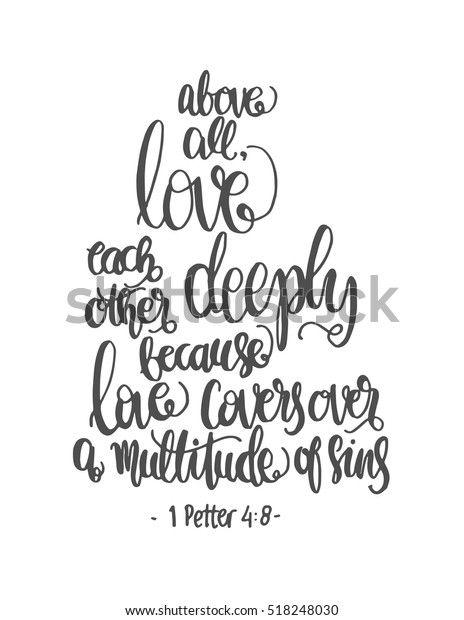 above
all,
love
each
other deeply
because
love covers over
a multitude of sins
- 1 Petter 4:8-
shutterstock
shutterstock.com · 518248030